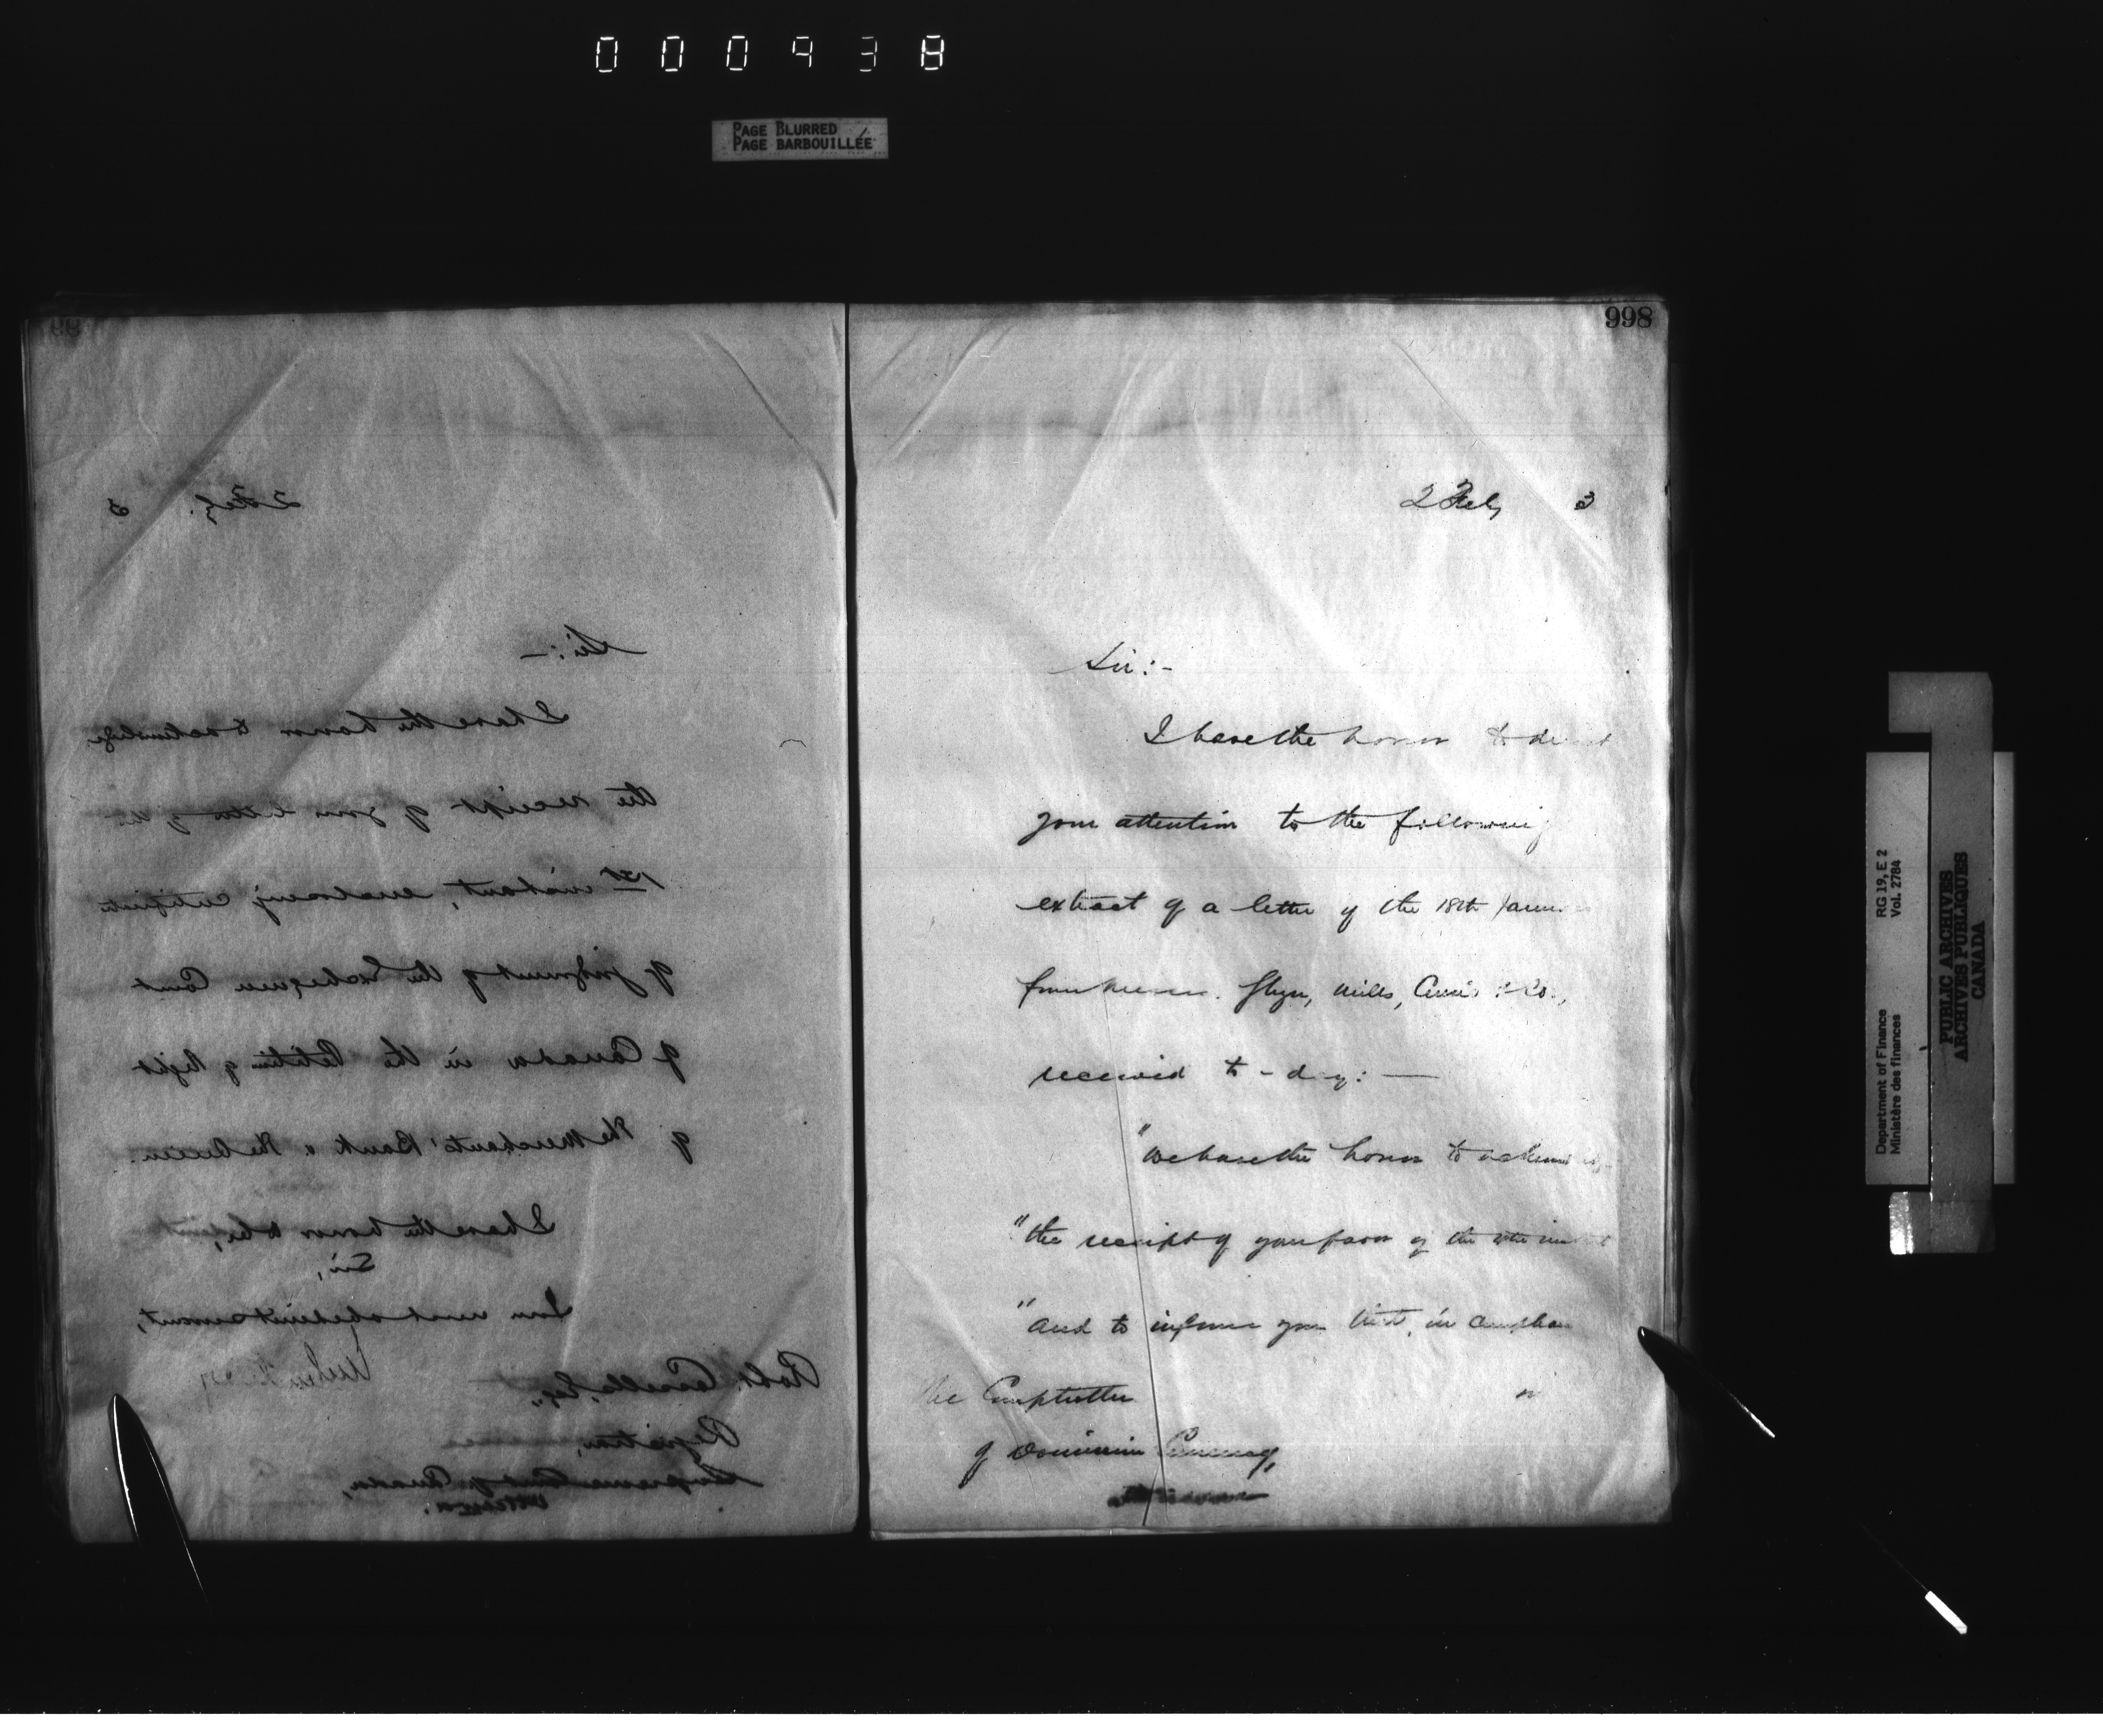 000938
PAGE BLURRED
PAGE BARBOUILLÉE
2 Feby. 3
Sir:—
I have the honor to acknowledge
the receipt of your letter of the
1st instant, enclosing certificate
of judgment of the Exchequer Court
of Canada in the Petition of Right
of The Merchants' Bank v The Queen.
I have the honor to be,
Sir,
Your most obedient servant,
Robt. Cassells, Esq.,
Registrar,
Supreme Court of Canada,
Ottawa.
998
2 Feby 3
Sir:-
I have the honor to
your attention to the following
extract of a letter of the 18th
from Messrs. Glyn, Mills, Currie & Co.,
received to-day:—
"We have the honor to
"the receipt of your favor of the
"and to inform you that, in
The Comptroller
of Dominion Currency,
RG 19, E 2
Vol. 2784
Department of Finance
Ministère des finances
PUBLIC ARCHIVES
ARCHIVES PUBLIQUES
CANADA